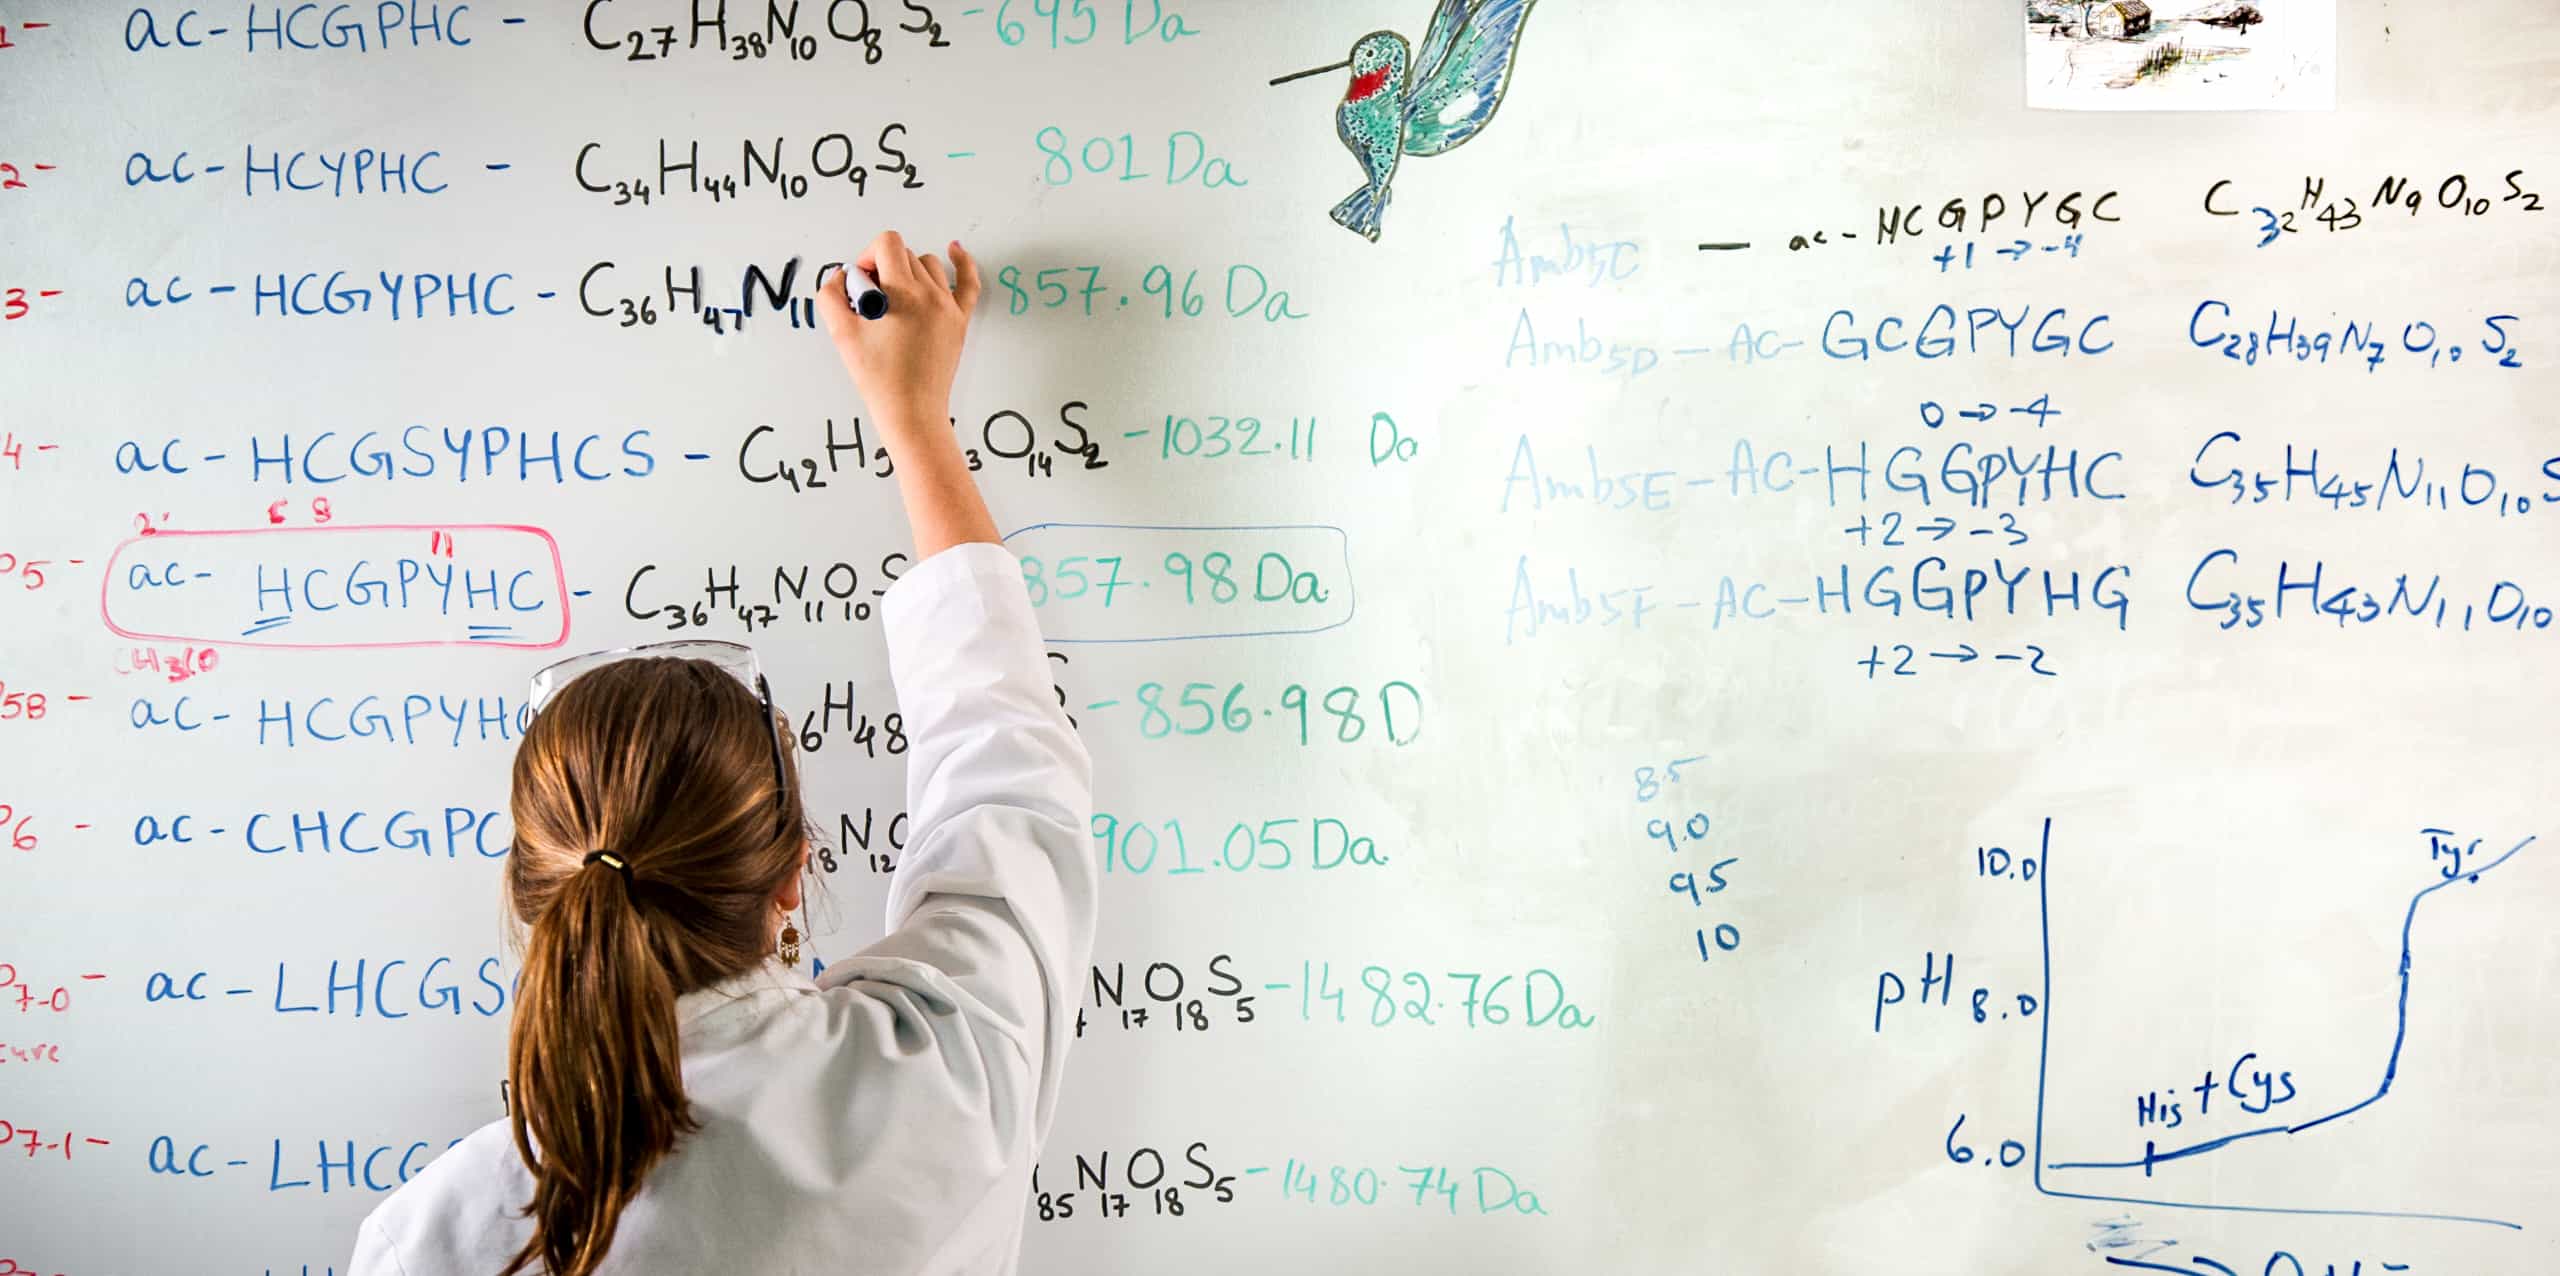 1- ac-HCGPHC - C27H38N10O8S2 - 695 Da
2- ac-HCYPHC - C34H44N10O9S2 - 801 Da
3- ac-HCGYPHC - C36H47N11 857.96 Da
4- ac-HCGSYPHCS - C42H O14S2 - 1032.11 Da
P5- ac-HCGPYHC - C36H47N11O10S 857.98 Da
CH3CO
5B- ac-HCGPYH 6H48 - 856.98 D
P6 - ac-CHCGPC 18N12 901.05 Da.
P7-0- ac-LHCGS N17O18S5 - 1482.76 Da
P7-1- ac-LHCG 85N17O18S5 - 1480.74 Da
Amb5C — ac-HCGPYGC C32H43N9O10S2
+1 → -4
Amb5D - AC-GCGPYGC C28H39N7O10S2
0 → -4
Amb5E - AC-HGGPYHC C35H45N11O10S
+2 → -3
Amb5F - AC-HGGPYHG C35H43N11O10
+2 → -2
8.5
9.0
9.5
10
10.0
Tyr
pH 8.0
His + Cys
6.0